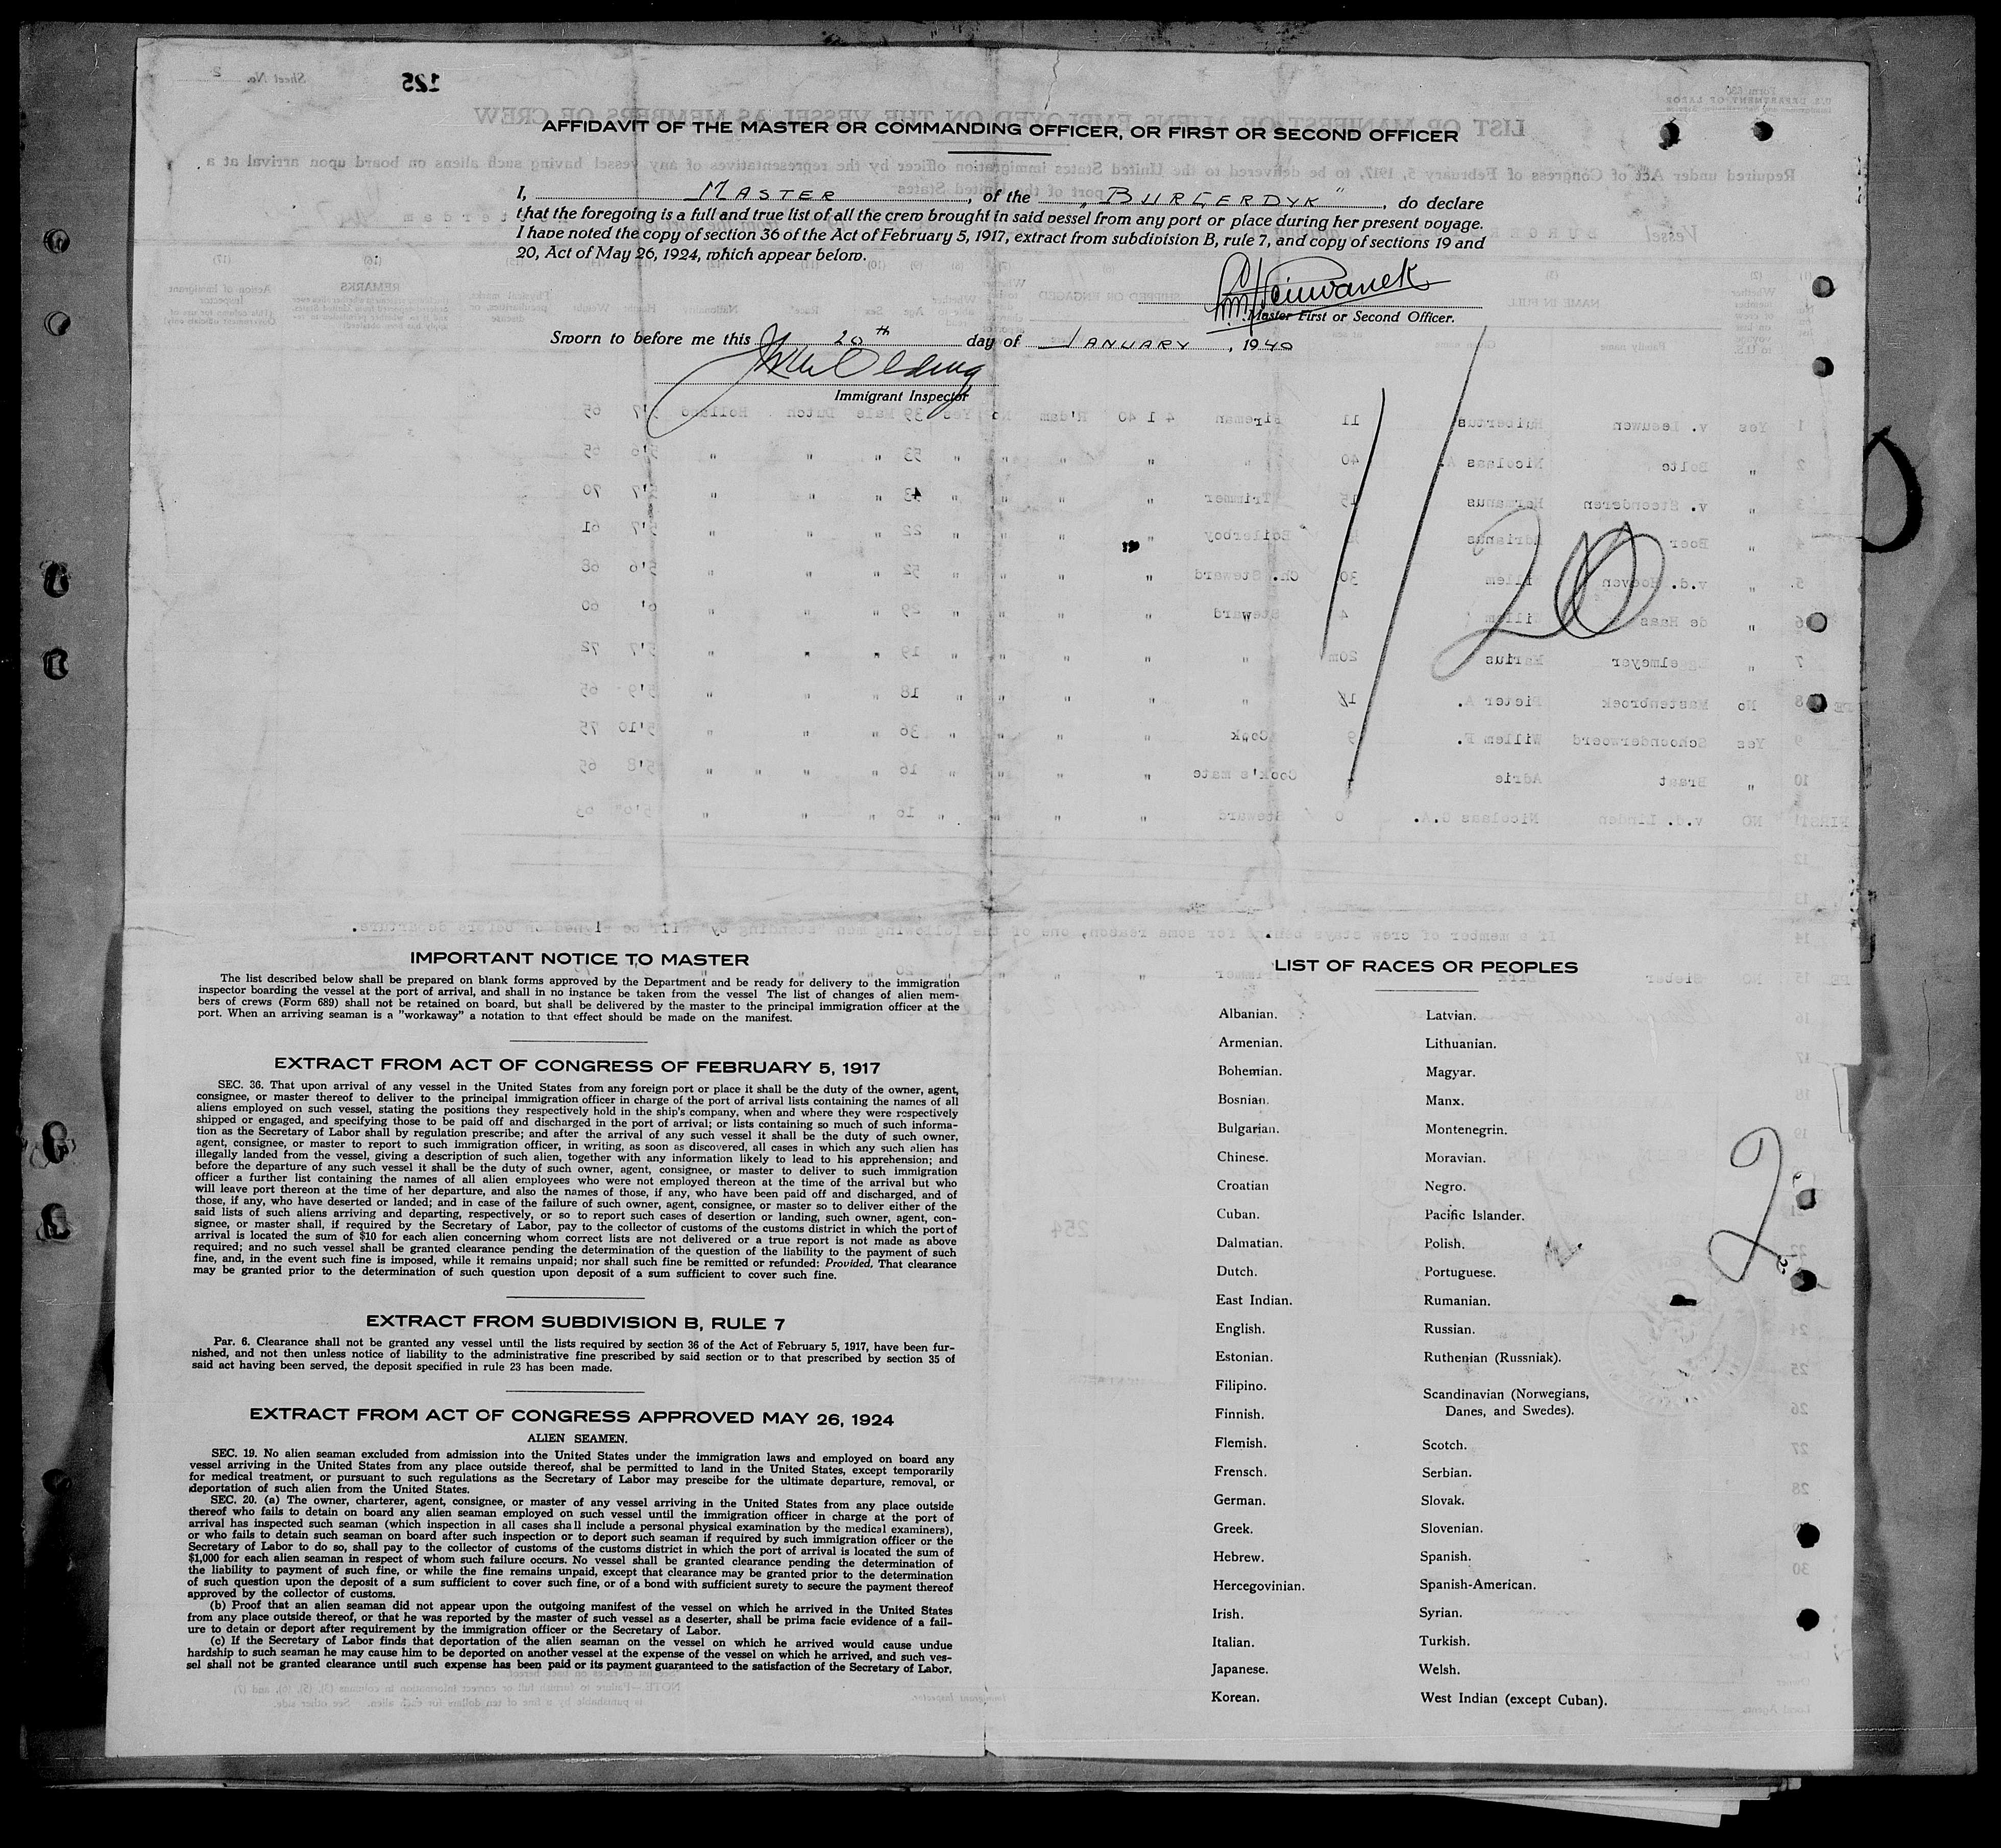 AFFIDAVIT OF THE MASTER OR COMMANDING OFFICER, OR FIRST OR SECOND OFFICER
I, MASTER, of the „BURGERDYK", do declare
that the foregoing is a full and true list of all the crew brought in said vessel from any port or place during her present voyage.
I have noted the copy of section 36 of the Act of February 5, 1917, extract from subdivision B, rule 7, and copy of sections 19 and
20, Act of May 26, 1924, which appear below.
Master First or Second Officer.
Sworn to before me this 20th day of JANUARY, 1940
Immigrant Inspector
1/20
IMPORTANT NOTICE TO MASTER
The list described below shall be prepared on blank forms approved by the Department and be ready for delivery to the immigration
inspector boarding the vessel at the port of arrival, and shall in no instance be taken from the vessel The list of changes of alien mem-
bers of crews (Form 689) shall not be retained on board, but shall be delivered by the master to the principal immigration officer at the
port. When an arriving seaman is a "workaway" a notation to that effect should be made on the manifest.
EXTRACT FROM ACT OF CONGRESS OF FEBRUARY 5, 1917
SEC. 36. That upon arrival of any vessel in the United States from any foreign port or place it shall be the duty of the owner, agent,
consignee, or master thereof to deliver to the principal immigration officer in charge of the port of arrival lists containing the names of all
aliens employed on such vessel, stating the positions they respectively hold in the ship's company, when and where they were respectively
shipped or engaged, and specifying those to be paid off and discharged in the port of arrival; or lists containing so much of such informa-
tion as the Secretary of Labor shall by regulation prescribe; and after the arrival of any such vessel it shall be the duty of such owner,
agent, consignee, or master to report to such immigration officer, in writing, as soon as discovered, all cases in which any such alien has
illegally landed from the vessel, giving a description of such alien, together with any information likely to lead to his apprehension; and
before the departure of any such vessel it shall be the duty of such owner, agent, consignee, or master to deliver to such immigration
officer a further list containing the names of all alien employees who were not employed thereon at the time of the arrival but who
will leave port thereon at the time of her departure, and also the names of those, if any, who have been paid off and discharged, and of
those, if any, who have deserted or landed; and in case of the failure of such owner, agent, consignee, or master so to deliver either of the
said lists of such aliens arriving and departing, respectively, or so to report such cases of desertion or landing, such owner, agent, con-
signee, or master shall, if required by the Secretary of Labor, pay to the collector of customs of the customs district in which the port of
arrival is located the sum of $10 for each alien concerning whom correct lists are not delivered or a true report is not made as above
required; and no such vessel shall be granted clearance pending the determination of the question of the liability to the payment of such
fine, and, in the event such fine is imposed, while it remains unpaid; nor shall such fine be remitted or refunded: Provided, That clearance
may be granted prior to the determination of such question upon deposit of a sum sufficient to cover such fine.
EXTRACT FROM SUBDIVISION B, RULE 7
Par. 6. Clearance shall not be granted any vessel until the lists required by section 36 of the Act of February 5, 1917, have been fur-
nished, and not then unless notice of liability to the administrative fine prescribed by said section or to that prescribed by section 35 of
said act having been served, the deposit specified in rule 23 has been made.
EXTRACT FROM ACT OF CONGRESS APPROVED MAY 26, 1924
ALIEN SEAMEN.
SEC. 19. No alien seaman excluded from admission into the United States under the immigration laws and employed on board any
vessel arriving in the United States from any place outside thereof, shal be permitted to land in the United States, except temporarily
for medical treatment, or pursuant to such regulations as the Secretary of Labor may prescibe for the ultimate departure, removal, or
deportation of such alien from the United States.
SEC. 20. (a) The owner, charterer, agent, consignee, or master of any vessel arriving in the United States from any place outside
thereof who fails to detain on board any alien seaman employed on such vessel until the immigration officer in charge at the port of
arrival has inspected such seaman (which inspection in all cases shall include a personal physical examination by the medical examiners),
or who fails to detain such seaman on board after such inspection or to deport such seaman if required by such immigration officer or the
Secretary of Labor to do so, shall pay to the collector of customs of the customs district in which the port of arrival is located the sum of
$1,000 for each alien seaman in respect of whom such failure occurs. No vessel shall be granted clearance pending the determination of
the liability to payment of such fine, or while the fine remains unpaid, except that clearance may be granted prior to the determination
of such question upon the deposit of a sum sufficient to cover such fine, or of a bond with sufficient surety to secure the payment thereof
approved by the collector of customs.
(b) Proof that an alien seaman did not appear upon the outgoing manifest of the vessel on which he arrived in the United States
from any place outside thereof, or that he was reported by the master of such vessel as a deserter, shall be prima facie evidence of a fail-
ure to detain or deport after requirement by the immigration officer or the Secretary of Labor.
(c) If the Secretary of Labor finds that deportation of the alien seaman on the vessel on which he arrived would cause undue
hardship to such seaman he may cause him to be deported on another vessel at the expense of the vessel on which he arrived, and such ves-
sel shall not be granted clearance until such expense has been paid or its payment guaranteed to the satisfaction of the Secretary of Labor.
LIST OF RACES OR PEOPLES
Albanian.
Armenian.
Bohemian.
Bosnian.
Bulgarian.
Chinese.
Croatian
Cuban.
Dalmatian.
Dutch.
East Indian.
English.
Estonian.
Filipino.
Finnish.
Flemish.
Frensch.
German.
Greek.
Hebrew.
Hercegovinian.
Irish.
Italian.
Japanese.
Korean.
Latvian.
Lithuanian.
Magyar.
Manx.
Montenegrin.
Moravian.
Negro.
Pacific Islander.
Polish.
Portuguese.
Rumanian.
Russian.
Ruthenian (Russniak).
Scandinavian (Norwegians,
Danes, and Swedes).
Scotch.
Serbian.
Slovak.
Slovenian.
Spanish.
Spanish-American.
Syrian.
Turkish.
Welsh.
West Indian (except Cuban).
2